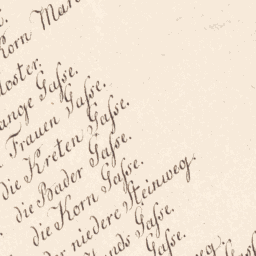 Korn Mar
loster.
ange Gaſse.
Frauen Gaſse.
die Kreten Gaſse.
die Bader Gaſse.
die Korn Gaſse.
niedere Steinweg
Gaſse.
Gaſse.